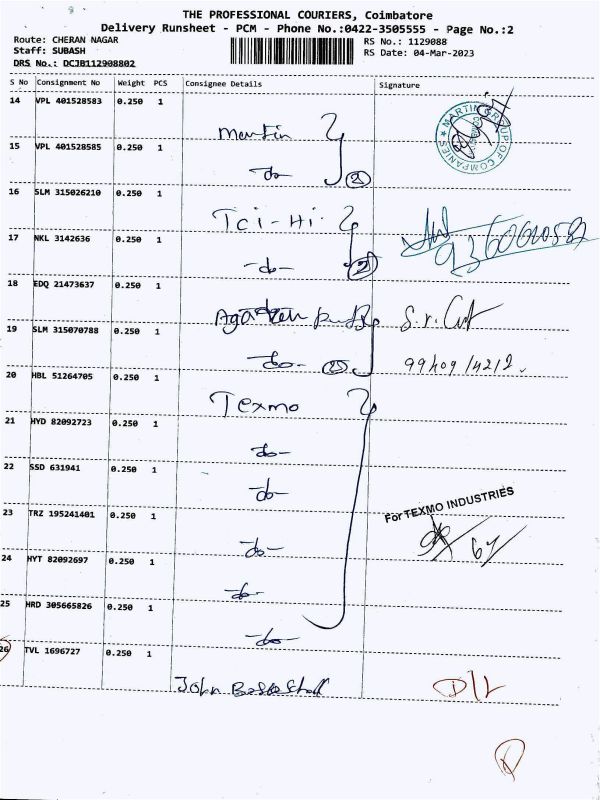 THE PROFESSIONAL COURIERS, Coimbatore
Delivery Runsheet - PCM - Phone No.:0422-3505555 - Page No.:2
Route: CHERAN NAGAR
RS No.: 1129088
Staff: SUBASH
RS Date: 04-Mar-2023
DRS No.: DCJB112908802
S No Consignment No Weight PCS Consignee Details Signature
14 VPL 401528583 0.250 1
Martin
MARTIN GROUP OF COMPANIES
15 VPL 401528585 0.250 1
-do- 2
16 SLM 315026210 0.250 1
Tci-Hi.
17 NKL 3142636 0.250 1
-do- 2
18 EDQ 21473637 0.250 1
19 SLM 315070788 0.250 1
-do-
20 HBL 51264705 0.250 1
Texmo
21 HYD 82092723 0.250 1
-do-
22 SSD 631941 0.250 1
-do-
23 TRZ 195241401 0.250 1
For TEXMO INDUSTRIES
-do-
24 HYT 82092697 0.250 1
-do-
25 HRD 305665826 0.250 1
-do-
26 TVL 1696727 0.250 1
John
D/L